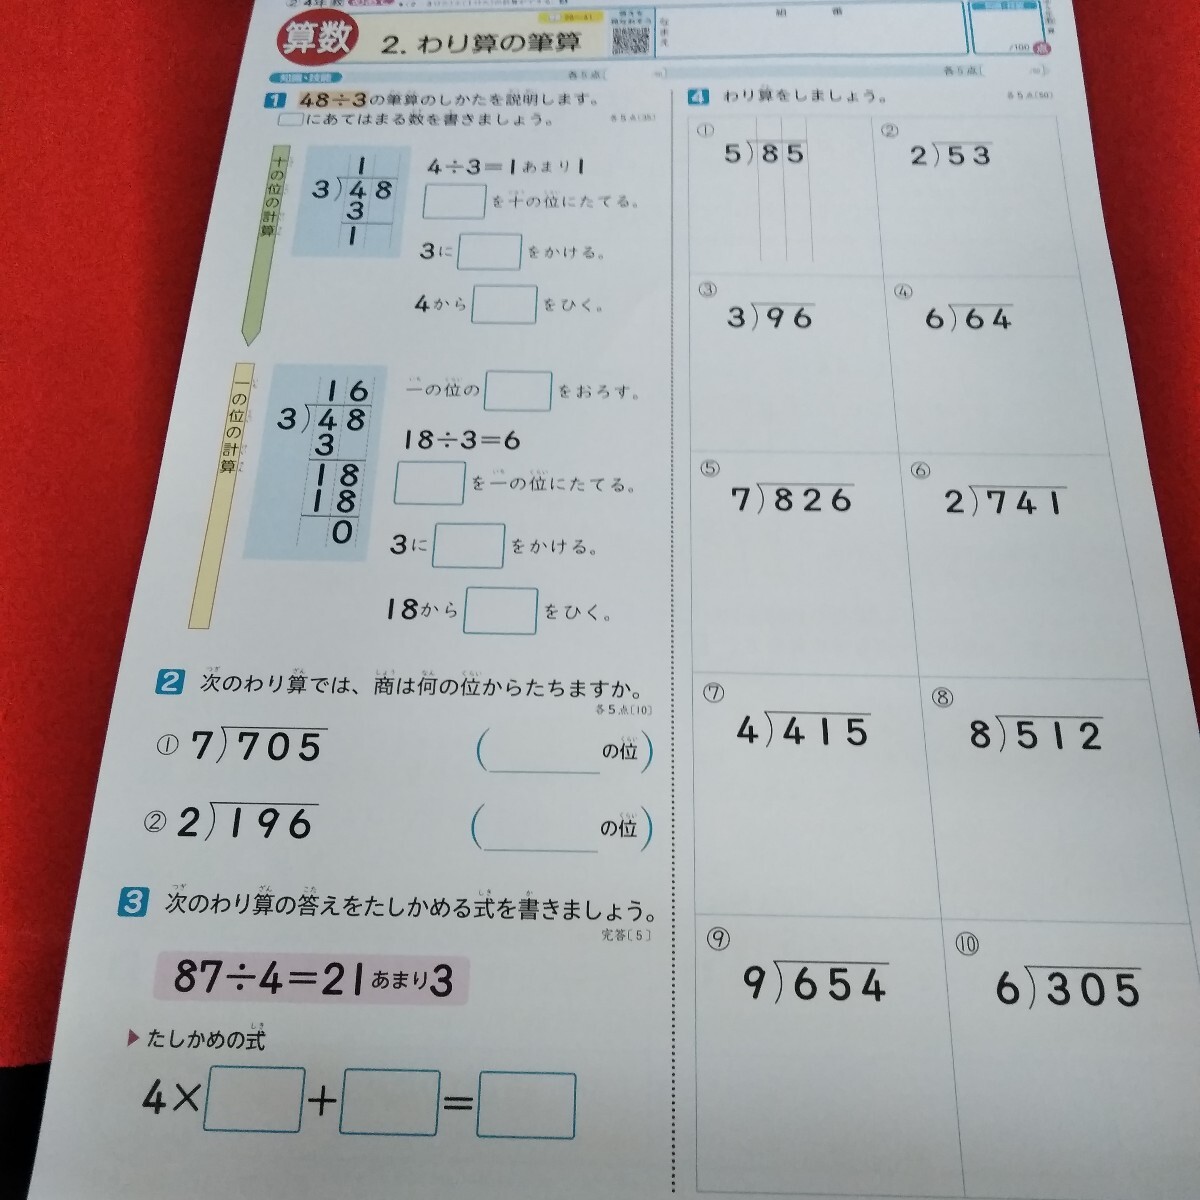 算数
2. わり算の筆算
組 番
なまえ
/100 点
知識・技能
各5点
各5点
1 48÷3の筆算のしかたを説明します。
□にあてはまる数を書きましょう。
各5点(35)
十の位の計算
1
3)48
3
1
4÷3=1あまり1
□を十の位にたてる。
3に□をかける。
4から□をひく。
一の位の計算
16
3)48
3
18
18
0
一の位の□をおろす。
18÷3=6
□を一の位にたてる。
3に□をかける。
18から□をひく。
2 次のわり算では、商は何の位からたちますか。
各5点[10]
① 7)705 ( の位)
② 2)196 ( の位)
3 次のわり算の答えをたしかめる式を書きましょう。
完答[5]
87÷4=21あまり3
▶たしかめの式
4×□+□=□
4 わり算をしましょう。
各5点(50)
① 5)85
② 2)53
③ 3)96
④ 6)64
⑤ 7)826
⑥ 2)741
⑦ 4)415
⑧ 8)512
⑨ 9)654
⑩ 6)305